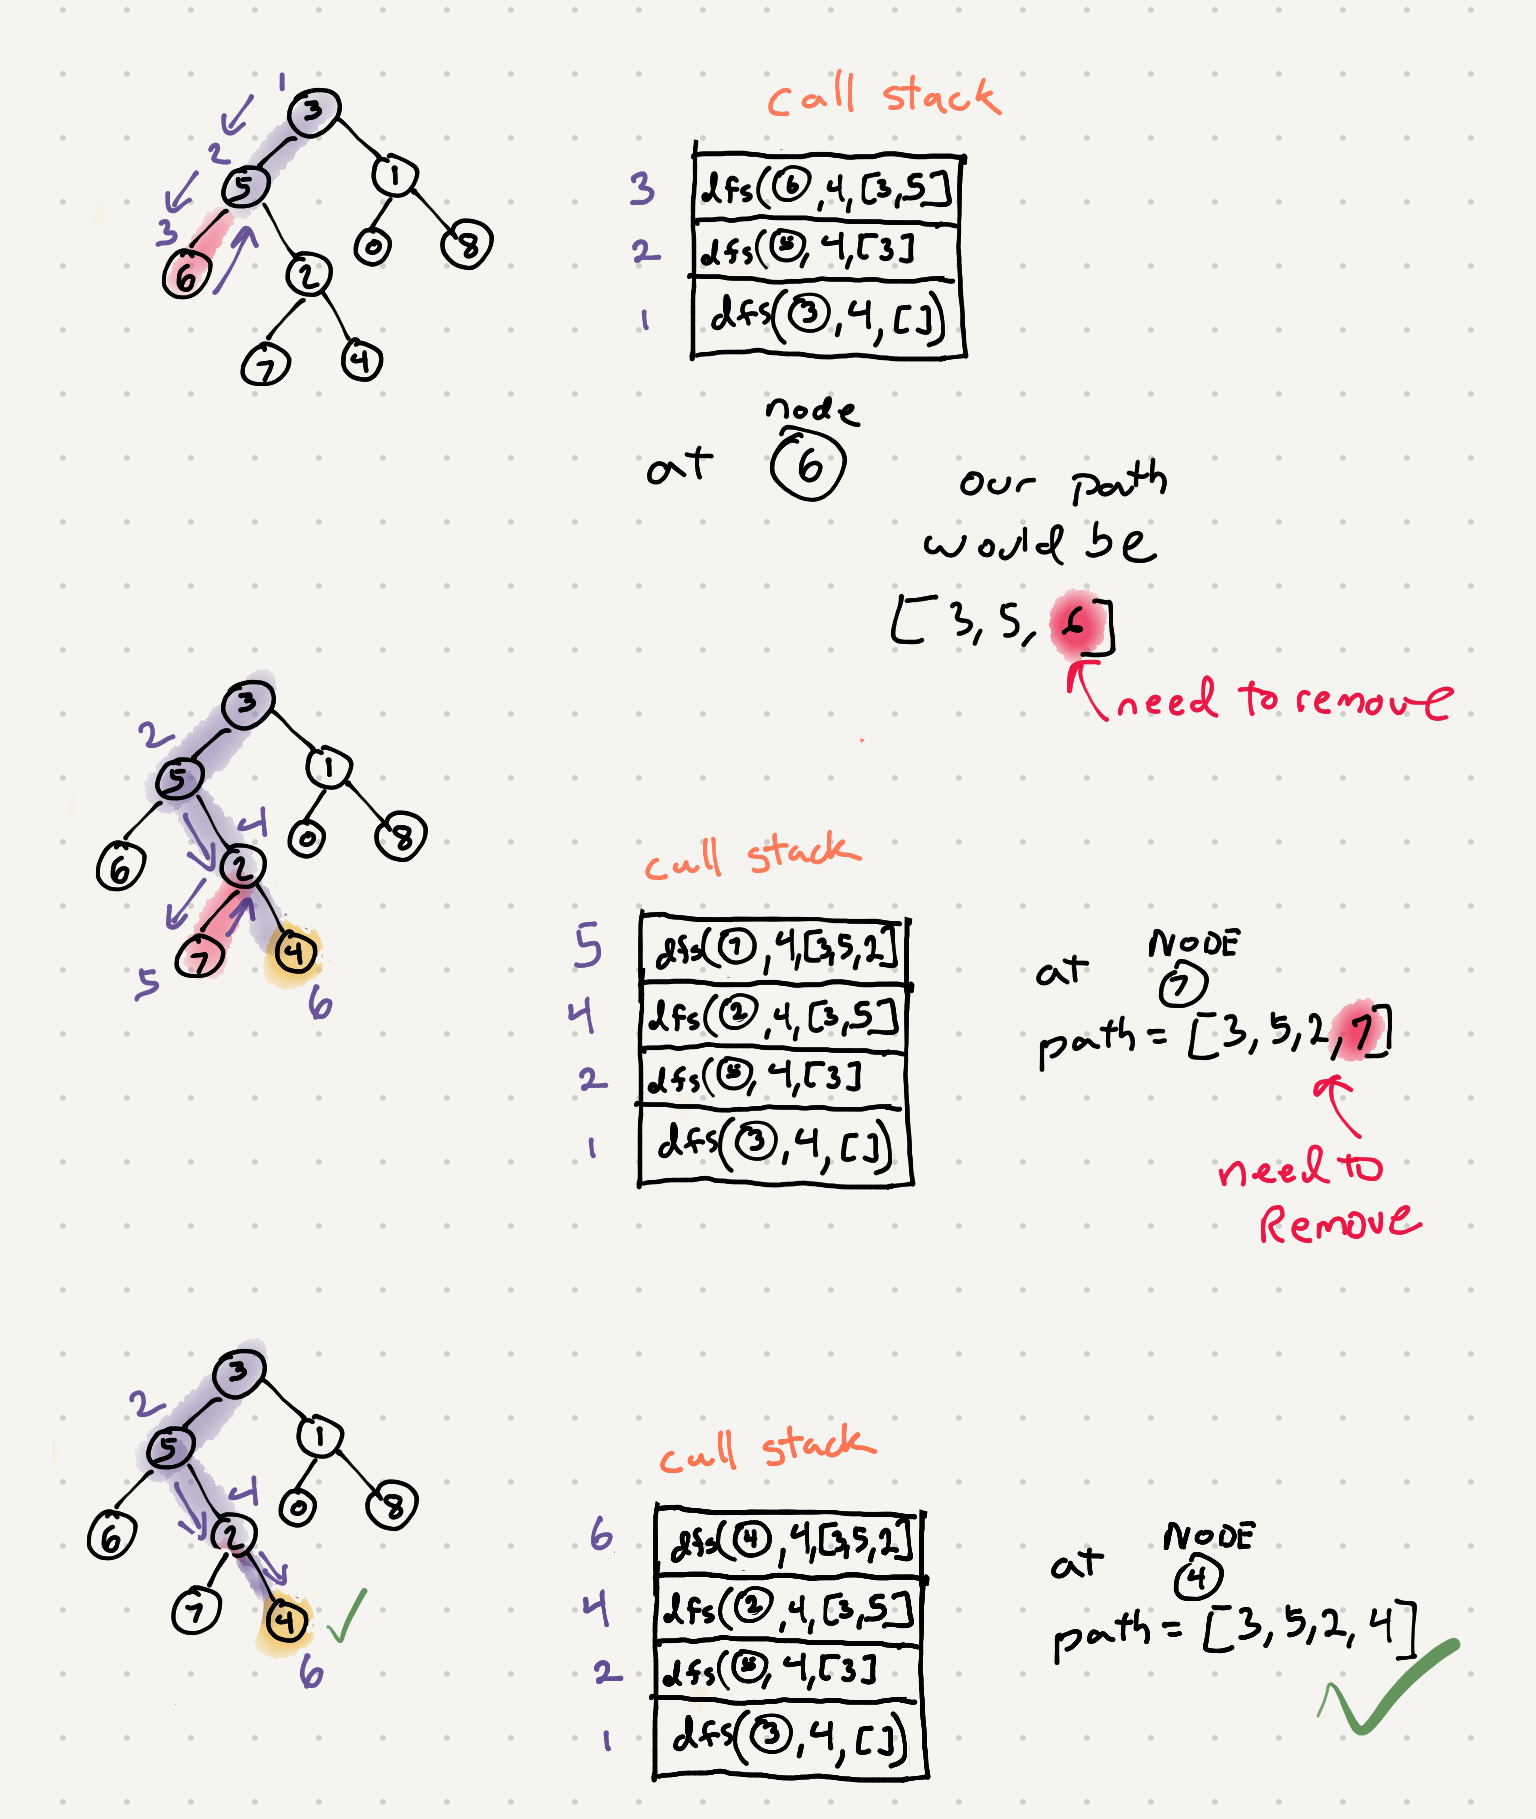 1
3
2
5
1
3
6
2
0
8
7
4
call stack
3 dfs(6, 4, [3, 5]
2 dfs(5, 4, [3]
1 dfs(3, 4, [])
node
at 6
our path
would be
[3, 5, 6]
need to remove
3
2
5
1
6
4
2
0
8
7
4
5
6
call stack
5 dfs(7, 4, [3, 5, 2]
4 dfs(2, 4, [3, 5]
2 dfs(5, 4, [3]
1 dfs(3, 4, [])
NODE
at 7
path = [3, 5, 2, 7]
need to
Remove
3
2
5
1
6
4
2
0
8
7
4
6
call stack
6 dfs(4, 4, [3, 5, 2]
4 dfs(2, 4, [3, 5]
2 dfs(5, 4, [3]
1 dfs(3, 4, [])
NODE
at 4
path = [3, 5, 2, 4]